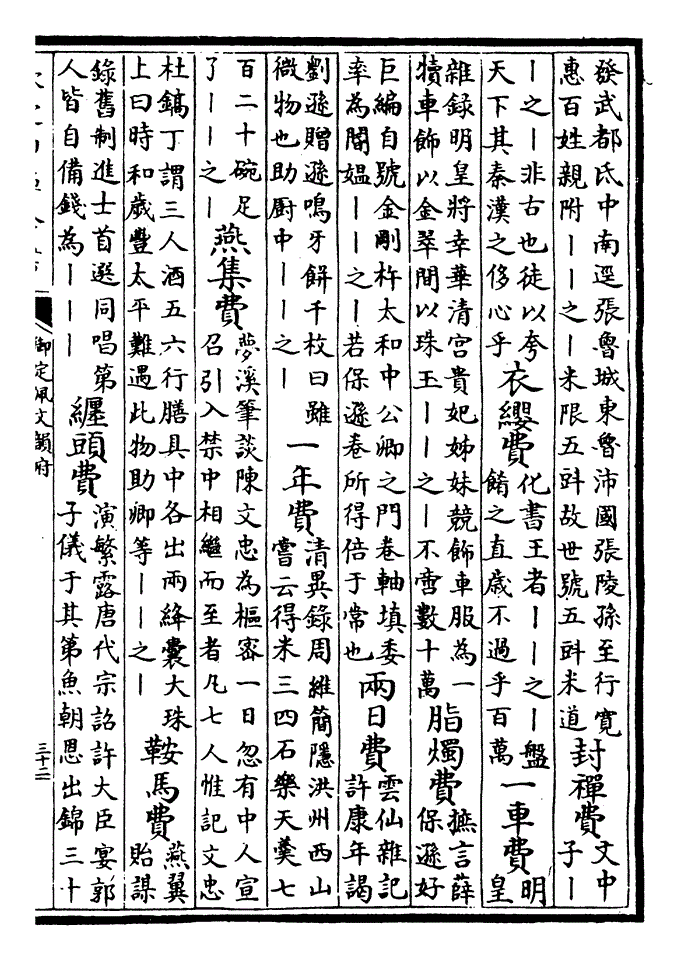 發武都氐中南逕張魯城東魯沛國張陵孫至行寬
惠百姓親附丨丨之丨米限五㪷故世號五㪷米道
封禪費
文中
子丨
丨之丨非古也徒以夸
天下其秦漢之侈心乎
衣纓費
化書王者丨丨之丨盤
餚之直歲不過乎百萬
一車費
明
皇
雜録明皇將幸華清宫貴妃姊妹競飾車服為一
犢車飾以金翠間以珠玉丨丨之丨不啻數十萬
脂燭費
摭言薛
保遜好
巨編自號金剛杵太和中公卿之門卷軸填委
率為閽媪丨丨之丨若保遜卷所得倍于常也
兩日費
雲仙雜記
許康年謁
劉遜贈遜鳴牙餅千枚曰雖
微物也助厨中丨丨之丨
一年費
清異錄周維簡隱洪州西山
嘗云得米三四石樂天羹七
百二十碗足
了丨丨之丨
燕集費
夢溪筆談陳文忠為樞密一日忽有中人宣
召引入禁中相繼而至者凡七人惟記文忠
杜鎬丁謂三人酒五六行膳具中各出兩絳囊大珠
上曰時和歲豐太平難遇此物助卿等丨丨之丨
鞍馬費
燕翼
貽謀
錄舊制進士首選同唱第
人皆自備錢為丨丨丨
纏頭費
演繁露唐代宗詔許大臣宴郭
子儀于其第魚朝恩出錦三十
御定佩文韻府
三十二